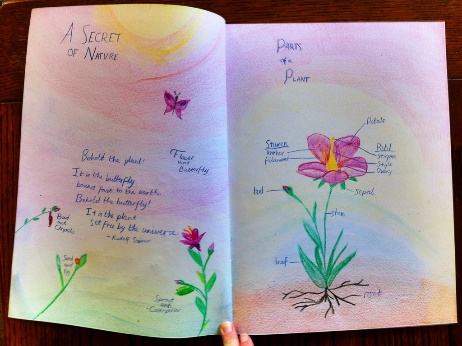 A SECRET
OF NATURE
Behold the plant!
It is the butterfly
bound fast to the earth.
Behold the butterfly!
It is the plant
set free by the universe.
- Rudolf Steiner
Flower
and
Butterfly
Bud
and
Chrysalis
Seed and
Egg
Sprout
and
Caterpillar
PARTS
of a
PLANT
Petals
Stamen
Anther
Filament
Pistil
Stigma
Style
Ovary
bud
sepal
stem
leaf
root